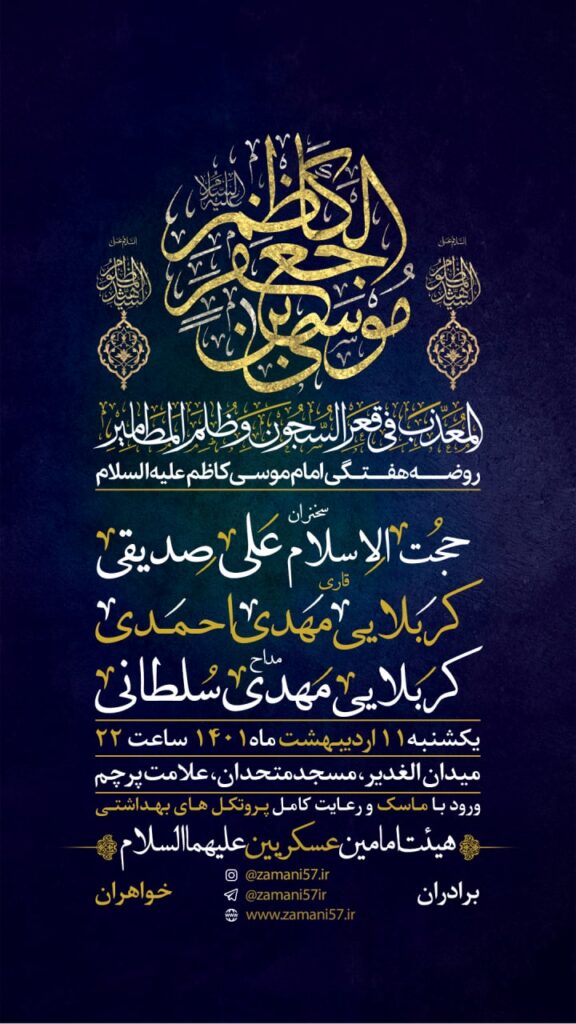 موسی بن جعفر الکاظم علیه السلام
المعذب فی قعر السجون و ظلم المطامیر
روضه هفتگی امام موسی کاظم علیه السلام
سخنران
حجت الاسلام علی صدیقی
قاری
کربلایی مهدی احمدی
مداح
کربلایی مهدی سلطانی
یکشنبه ۱۱ اردیبهشت ماه ۱۴۰۱ ساعت ۲۲
میدان الغدیر، مسجد متحدان، علامت پرچم
ورود با ماسک و رعایت کامل پروتکل های بهداشتی
هیئت امامین عسکریین علیهما السلام
برادران
خواهران
@zamani57.ir
@zamani57ir
www.zamani57.ir